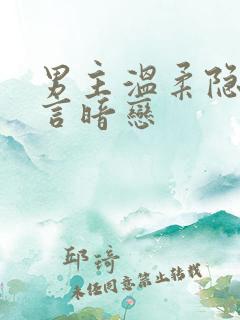 男主溫柔隐
言暗戀
邱琦
未经同意禁止转载